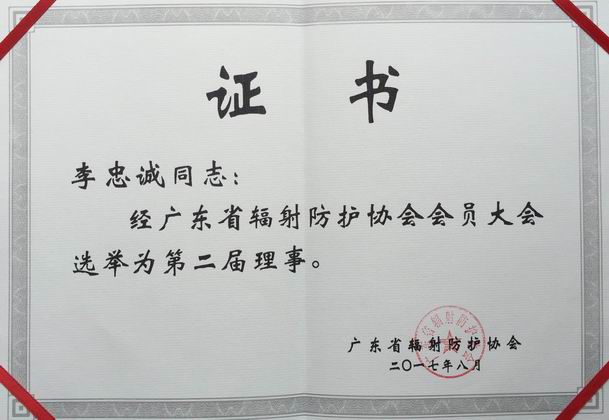 证 书
李忠诚同志：
经广东省辐射防护协会会员大会
选举为第二届理事。
广东省辐射防护协会
二〇一七年八月